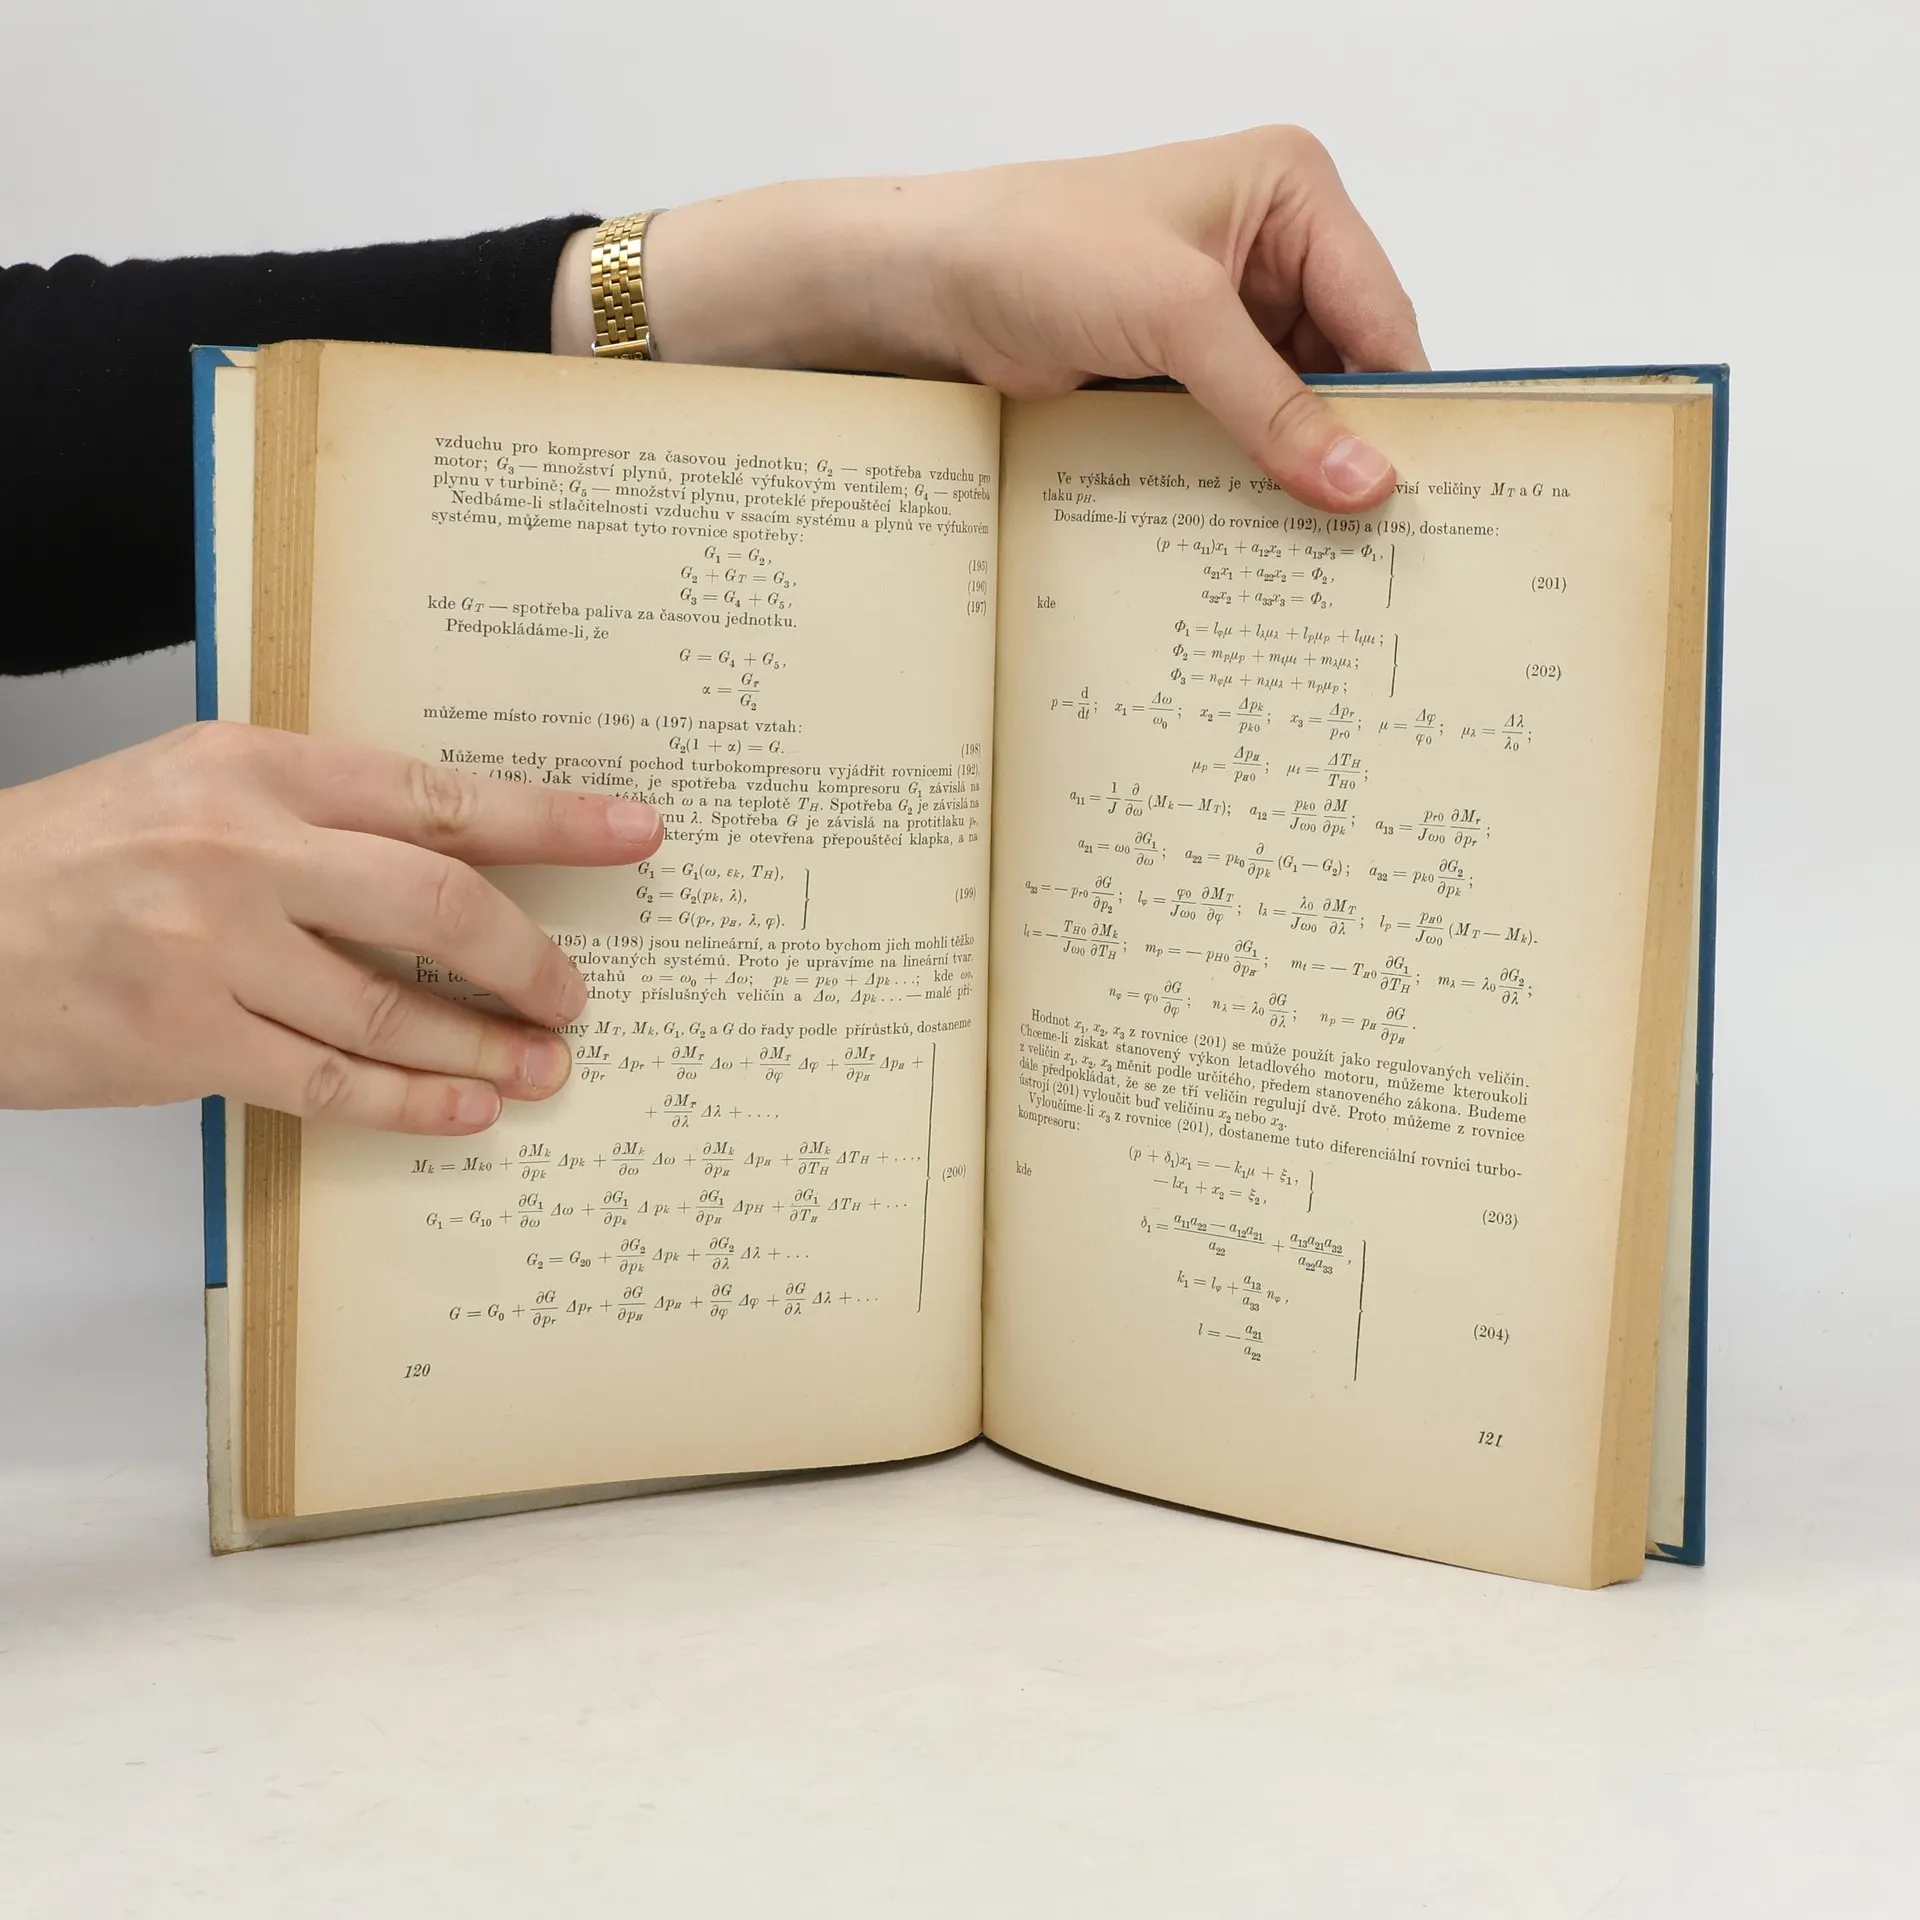 vzduchu pro kompresor za časovou jednotku; G₂ — spotřeba vzduchu pro
motor; G₃ — množství plynů, proteklé výfukovým ventilem; G₄ — spotřeba
plynu v turbině; G₅ — množství plynu, proteklé přepouštěcí klapkou.
Nedbáme-li stlačitelnosti vzduchu v ssacím systému a plynů ve výfukovém
systému, můžeme napsat tyto rovnice spotřeby:
G₁ = G₂, (195)
G₂ + G_T = G₃, (196)
G₃ = G₄ + G₅, (197)
kde G_T — spotřeba paliva za časovou jednotku.
Předpokládáme-li, že
G = G₄ + G₅,
α = G_T / G₂
můžeme místo rovnic (196) a (197) napsat vztah:
G₂(1 + α) = G. (198)
Můžeme tedy pracovní pochod turbokompresoru vyjádřit rovnicemi (192),
(198). Jak vidíme, je spotřeba vzduchu kompresoru G₁ závislá na
ω a na teplotě T_H. Spotřeba G₂ je závislá na
λ. Spotřeba G je závislá na protitlaku p_r,
kterým je otevřena přepouštěcí klapka, a na
G₁ = G₁(ω, ε_k, T_H),
G₂ = G₂(p_k, λ), (199)
G = G(p_r, p_H, λ, φ).
(195) a (198) jsou nelineární, a proto bychom jich mohli těžko
systémů. Proto je upravíme na lineární tvar.
Při ω = ω₀ + Δω; p_k = p_k0 + Δp_k ...; kde ω₀,
příslušných veličin a Δω, Δp_k ... — malé pří-
M_T, M_k, G₁, G₂ a G do řady podle přírůstků, dostaneme
∂M_T/∂p_r Δp_r + ∂M_T/∂ω Δω + ∂M_T/∂φ Δφ + ∂M_T/∂p_H Δp_H +
+ ∂M_T/∂λ Δλ + ...,
M_k = M_k0 + ∂M_k/∂p_k Δp_k + ∂M_k/∂ω Δω + ∂M_k/∂p_H Δp_H + ∂M_k/∂T_H ΔT_H + ..., (200)
G₁ = G₁₀ + ∂G₁/∂ω Δω + ∂G₁/∂p_k Δp_k + ∂G₁/∂p_H Δp_H + ∂G₁/∂T_H ΔT_H + ...
G₂ = G₂₀ + ∂G₂/∂p_k Δp_k + ∂G₂/∂λ Δλ + ...
G = G₀ + ∂G/∂p_r Δp_r + ∂G/∂p_H Δp_H + ∂G/∂φ Δφ + ∂G/∂λ Δλ + ...
120
Ve výškách větších, než je veličiny M_T a G na
tlaku p_H.
Dosadíme-li výraz (200) do rovnice (192), (195) a (198), dostaneme:
(p + a₁₁)x₁ + a₁₂x₂ + a₁₃x₃ = Φ₁,
a₂₁x₁ + a₂₂x₂ = Φ₂, (201)
a₃₂x₂ + a₃₃x₃ = Φ₃,
kde
Φ₁ = l_φμ + l_λμ_λ + l_pμ_p + l_tμ_t;
Φ₂ = m_pμ_p + m_tμ_t + m_λμ_λ; (202)
Φ₃ = n_φμ + n_λμ_λ + n_pμ_p;
p = d/dt; x₁ = Δω/ω₀; x₂ = Δp_k/p_k0; x₃ = Δp_r/p_r0; μ = Δφ/φ₀; μ_λ = Δλ/λ₀;
μ_p = Δp_H/p_H0; μ_t = ΔT_H/T_H0;
a₁₁ = 1/J ∂/∂ω (M_k — M_T); a₁₂ = p_k0/Jω₀ ∂M/∂p_k; a₁₃ = p_r0/Jω₀ ∂M_r/∂p_r;
a₂₁ = ω₀ ∂G₁/∂ω; a₂₂ = p_k0 ∂/∂p_k (G₁ — G₂); a₃₂ = p_k0 ∂G₂/∂p_k;
a₃₃ = — p_r0 ∂G/∂p₂; l_φ = φ₀/Jω₀ ∂M_T/∂φ; l_λ = λ₀/Jω₀ ∂M_T/∂λ; l_p = p_H0/Jω₀ (M_T — M_k).
l_t = — T_H0/Jω₀ ∂M_k/∂T_H; m_p = — p_H0 ∂G₁/∂p_H; m_t = — T_H0 ∂G₁/∂T_H; m_λ = λ₀ ∂G₂/∂λ;
n_φ = φ₀ ∂G/∂φ; n_λ = λ₀ ∂G/∂λ; n_p = p_H ∂G/∂p_H.
Hodnot x₁, x₂, x₃ z rovnice (201) se může použít jako regulovaných veličin.
Chceme-li získat stanovený výkon letadlového motoru, můžeme kteroukoli
z veličin x₁, x₂, x₃ měnit podle určitého, předem stanoveného zákona. Budeme
dále předpokládat, že se ze tří veličin regulují dvě. Proto můžeme z rovnice
ústrojí (201) vyloučit buď veličinu x₂ nebo x₃.
Vyloučíme-li x₃ z rovnice (201), dostaneme tuto diferenciální rovnici turbo-
kompresoru:
(p + δ₁)x₁ = — k₁μ + ξ₁,
— lx₁ + x₂ = ξ₂, (203)
kde
δ₁ = (a₁₁a₂₂ — a₁₂a₂₁)/a₂₂ + a₁₃a₂₁a₃₂/a₂₂a₃₃,
k₁ = l_φ + a₁₃/a₃₃ n_φ, (204)
l = — a₂₁/a₂₂
121